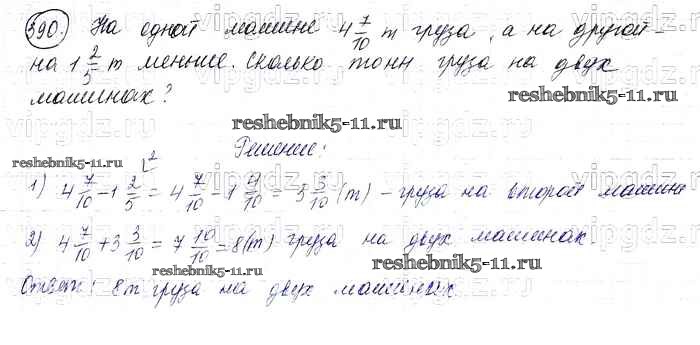 390. На одной машине 4 7/10 т груза, а на другой –
на 1 2/5 т меньше. Сколько тонн груза на двух
машинах?
reshebnik5-11.ru
reshebnik5-11.ru
Решение:
reshebnik5-11.ru
1) 4 7/10 - 1 2/5 = 4 7/10 - 1 4/10 = 3 3/10 (т) – груза на второй машине
2) 4 7/10 + 3 3/10 = 7 10/10 = 8 (т) груза на двух машинах.
reshebnik5-11.ru
reshebnik5-11.ru
Ответ: 8т груза на двух машинах.